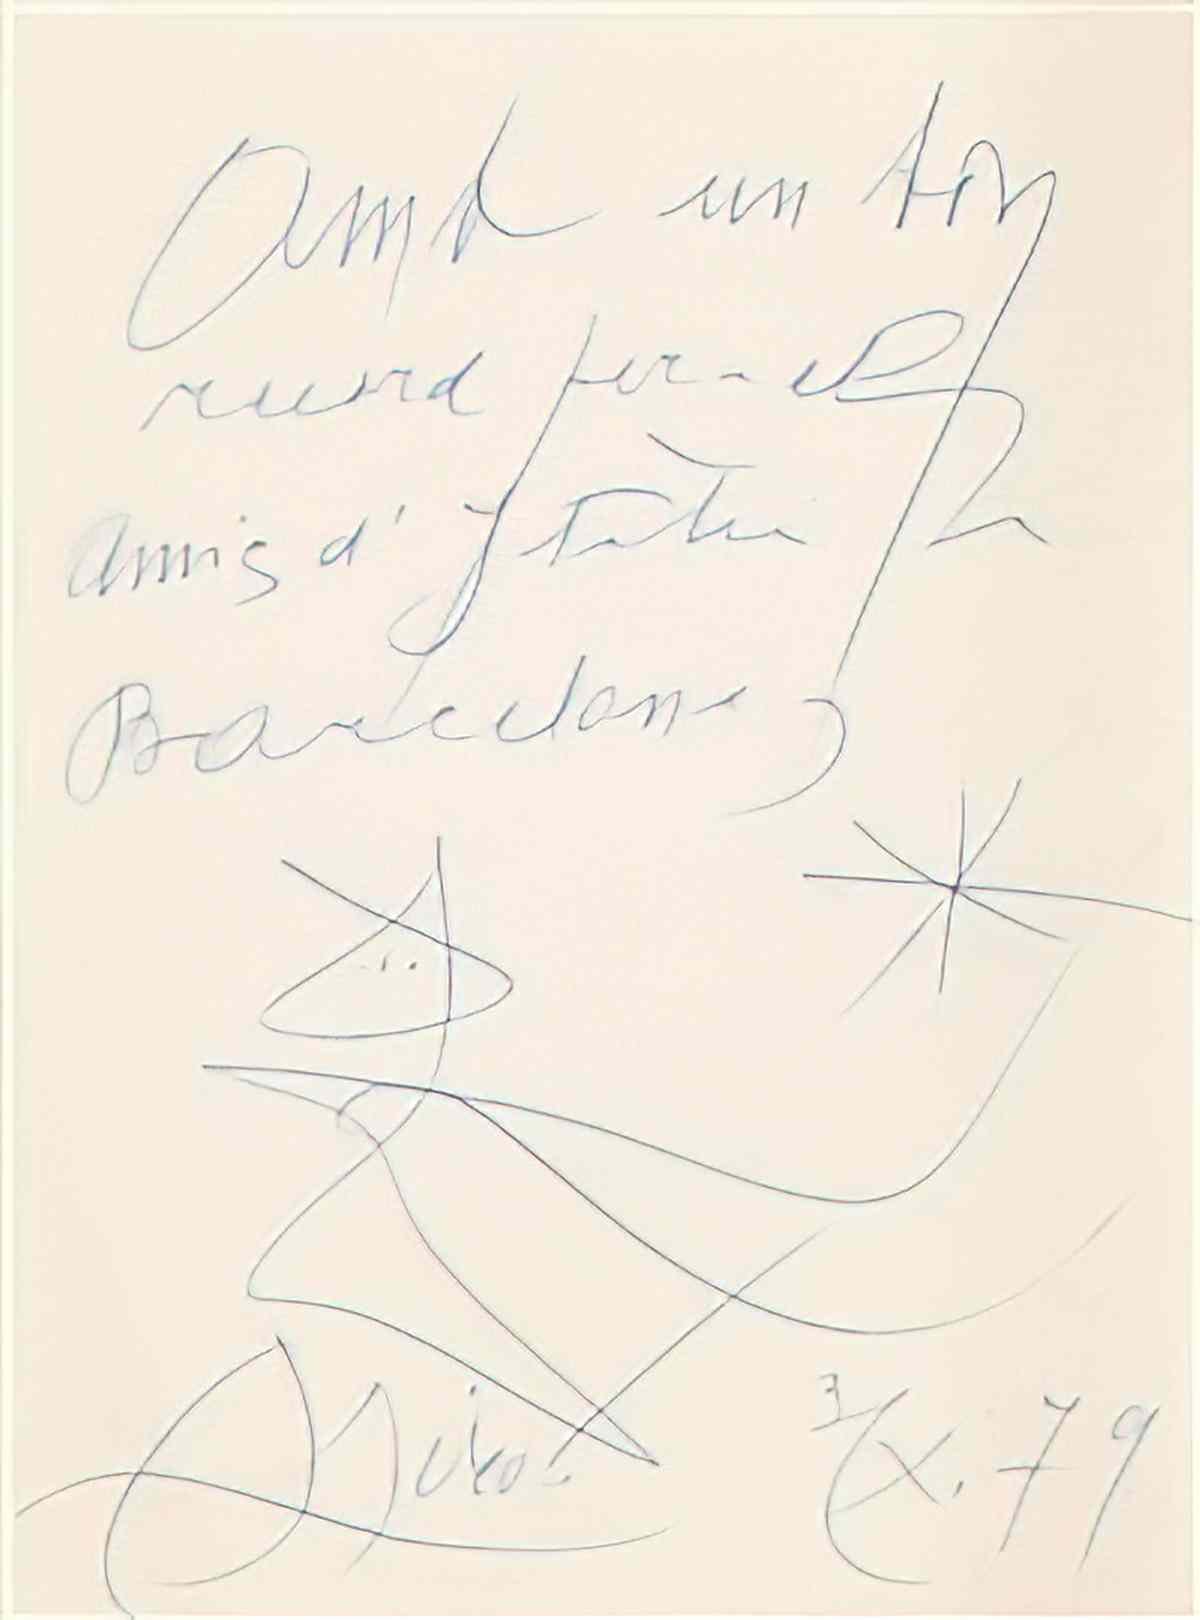 Amb un bon
record per als
amics d'Italia
Barcelona
Miró.
3/X.79